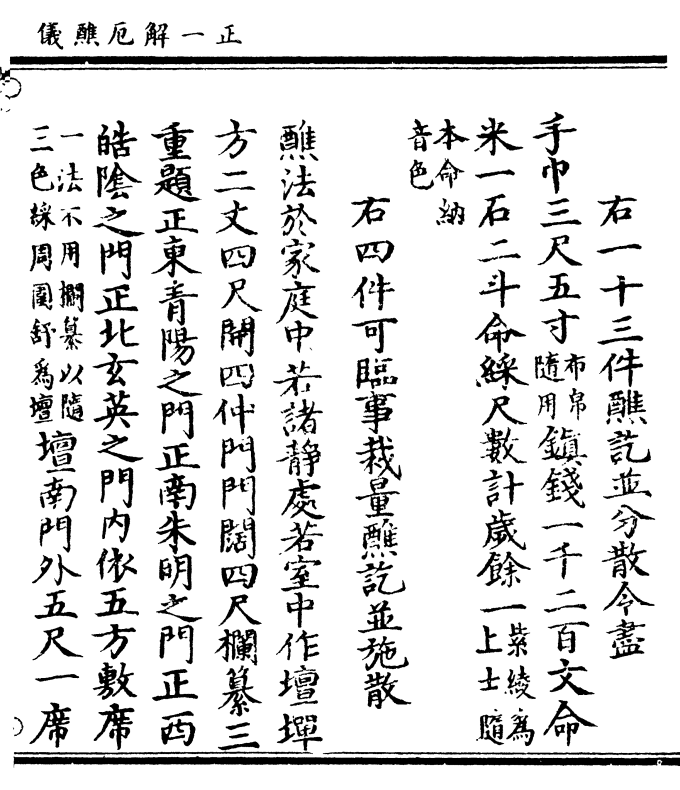 正一解厄醮儀
右一十三件醮訖並分散令盡
手巾三尺五寸布帛隨用鎮錢一千二百文命
米一石二斗命綵尺數計歲餘一紫綾為上士隨
本命納音色
右四件可臨事裁量醮訖並施散
醮法於家庭中若諸靜處若室中作壇墠
方二丈四尺開四仲門門闊四尺欄纂三
重題正東青陽之門正南朱明之門正西
皓陰之門正北玄英之門內依五方敷席
一法不用欄纂以隨三色綵周圍舒為壇壇南門外五尺一席